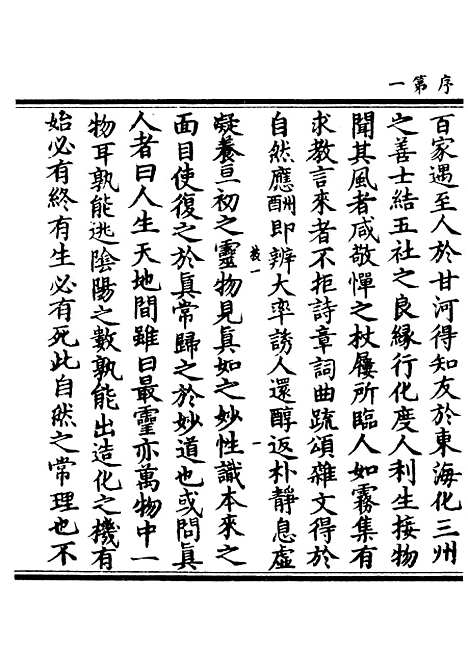 序第一
百家遇至人於甘河得知友於東海化三州
之善士結五社之良緣行化度人利生接物
聞其風者咸敬憚之杖屨所臨人如霧集有
求教言來者不拒詩章詞曲䟽頌雜文得於
自然應酬即辦大率誘人還醇返朴靜息虛
凝養亘初之靈物見真如之妙性識本來之
面目使復之於真常歸之於妙道也或問真
人者曰人生天地間雖曰最靈亦萬物中一
物耳孰能逃陰陽之數孰能出造化之機有
始必有終有生必有死此自然之常理也不